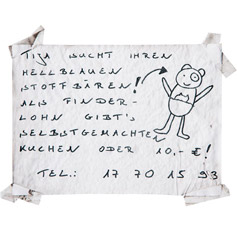 TINA SUCHT IHREN
HELLBLAUEN
STOFFBÄREN!
ALS FINDER-
LOHN GIBT'S
SELBSTGEMACHTEN
KUCHEN ODER 10,- €!
TEL.: 17 70 15 93